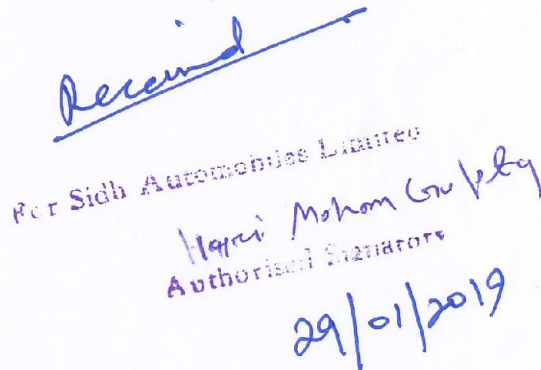 Received
For Sidh Automobiles Limited
Hari Mohan Gupta
Authorised Signatory
29/01/2019